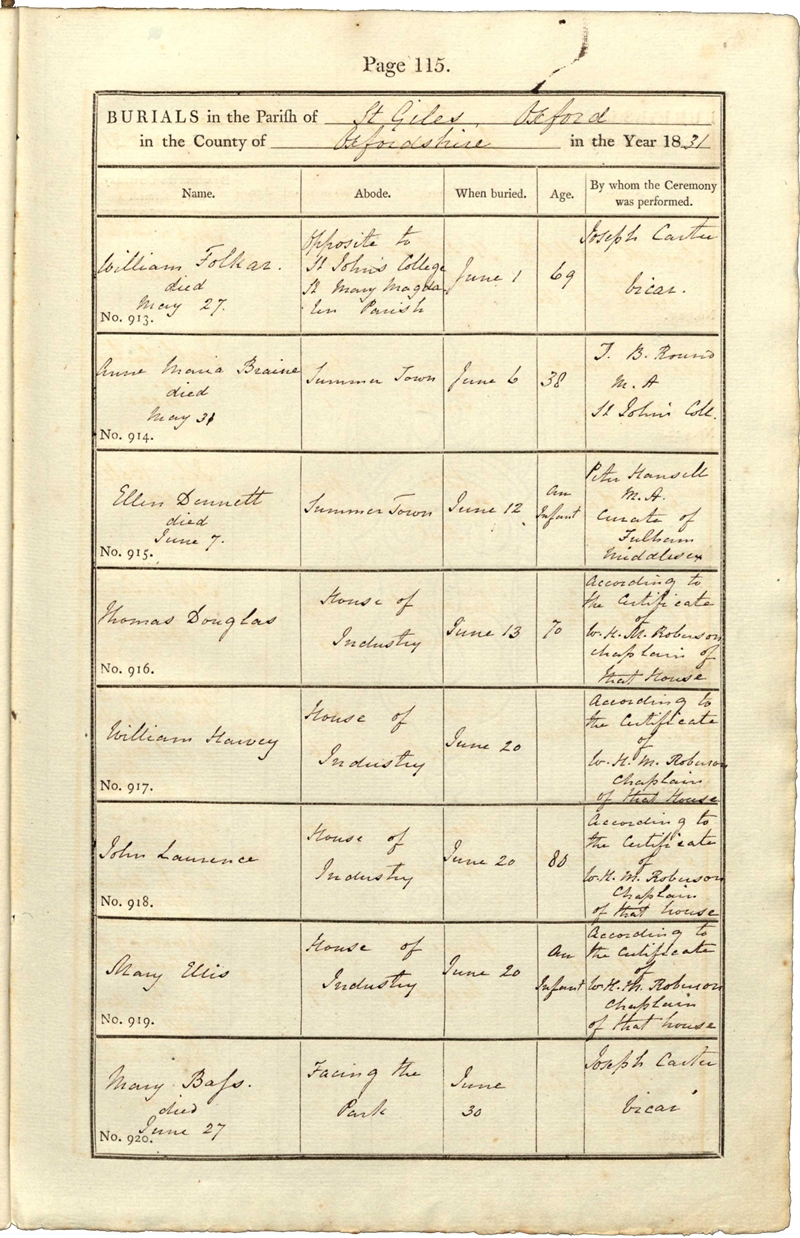 Page 115.
BURIALS in the Pariſh of St Giles, Oxford
in the County of Oxfordshire in the Year 1831
Name. Abode. When buried. Age. By whom the Ceremony
was performed.
William Folkar.
died
May 27.
No. 913.
Opposite to
St John's College
St Mary Magda
len Parish
June 1
69
Joseph Carter
Vicar.
Anne Maria Braine
died
May 31
No. 914.
Summer Town
June 6
38
T. B. Round
M. A
St John's Coll.
Ellen Dennett
died
June 7.
No. 915.
Summer Town
June 12
An
Infant
Peter Hansell
M.A.
Curate of
Fulham
Middlesex
Thomas Douglas
No. 916.
House of
Industry
June 13
70
According to
the Certificate
of
W. H. M. Roberson
Chaplain of
that House
William Harvey
No. 917.
House of
Industry
June 20
According to
the Certificate
of
W. H. M. Roberson
Chaplain
of that House
John Laurence
No. 918.
House of
Industry
June 20
80
According to
the Certificate
of
W. H. M. Roberson
Chaplain
of that house
Mary Ellis
No. 919.
House of
Industry
June 20
An
Infant
According to
the Certificate
of
W. H. M. Roberson
Chaplain
of that house
Mary Baſs.
died
June 27
No. 920.
Facing the
Park
June
30
Joseph Carter
Vicar